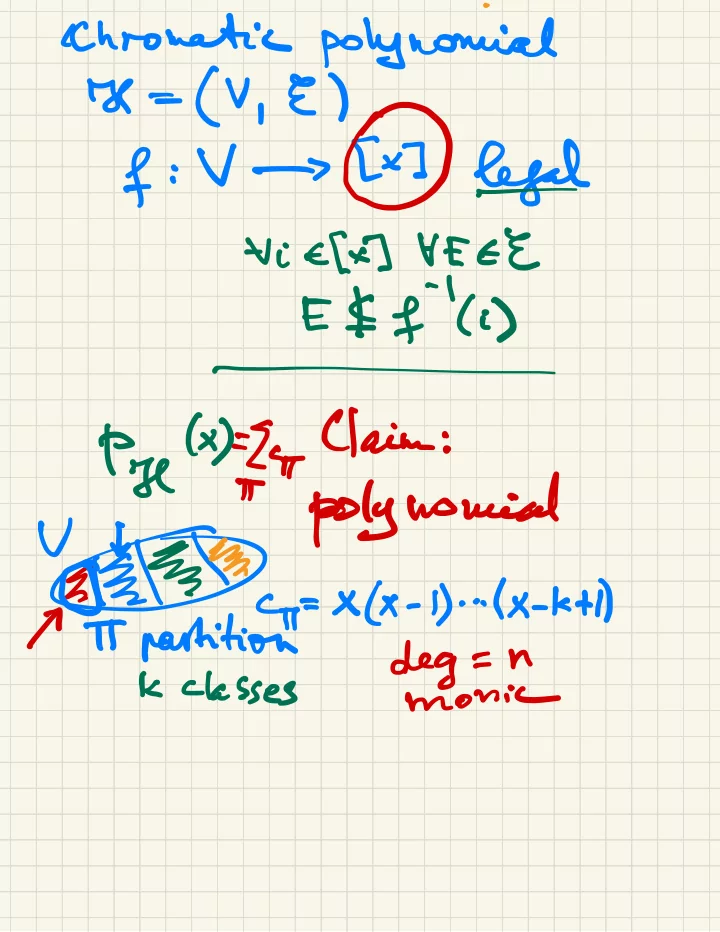 Chromatic polynomial
ℋ = (V, ℰ)
f : V ⟶ [x] legal
∀i ∈ [x] ∀E ∈ ℰ
E ⊈ f⁻¹(i)
p_ℋ (x) = ∑_π c_π Claim:
polynomial
V
π partition c_π = x(x-1)⋯(x-k+1)
k classes deg = n
monic